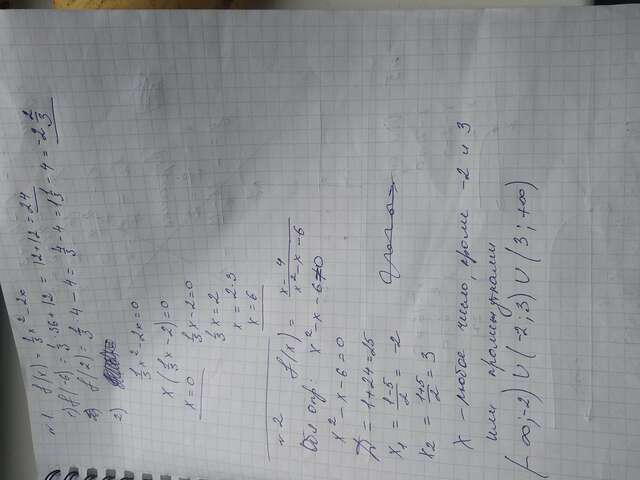 №1 f(x) = 1/3 x² - 2x
1) f(-6) = 1/3 · 36 + 12 = 12 + 12 = 24
f(2) = 1/3 · 4 - 4 = 4/3 - 4 = 1 1/3 - 4 = -2 2/3
2)
1/3 x² - 2x = 0
x(1/3 x - 2) = 0
x = 0 1/3 x - 2 = 0
1/3 x = 2
x = 2·3
x = 6
№2 f(x) = x-4 / x² - x - 6
опр: x² - x - 6 ≠ 0
x² - x - 6 = 0
D = 1 + 24 = 25
x₁ = 1-5/2 = -2
x₂ = 1+5/2 = 3
x - любое число, кроме -2 и 3
или промежутками
(-∞; -2) ∪ (-2; 3) ∪ (3; +∞)